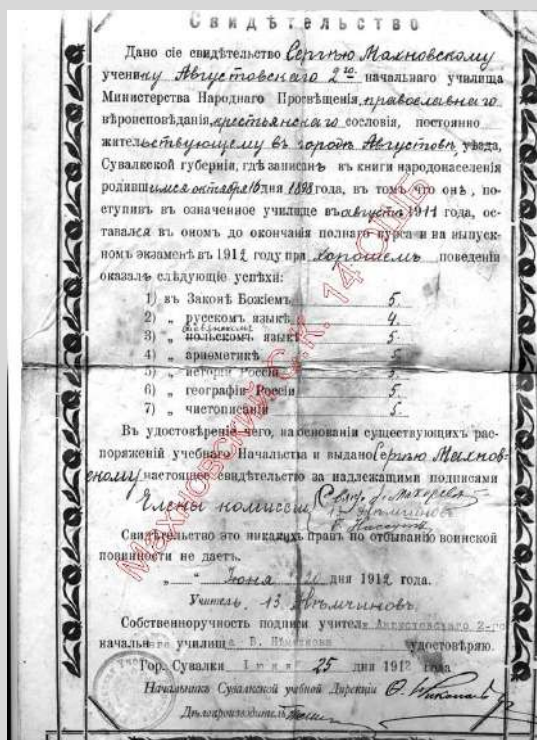 Свидѣтельство
Дано сіе свидѣтельство Сергѣю Махновскому
ученику Августовскаго 2го начальнаго училища
Министерства Народнаго Просвѣщенія, православнаго
вѣроисповѣданія, крестьянскаго сословія, постоянно
жительствующему въ городѣ Августовѣ, уѣзда,
Сувалкской губерніи, гдѣ записанъ въ книги народонаселенія
родившимся октября 16 дня 1898 года, въ томъ что онъ, по-
ступивъ въ означенное училище въ августѣ 1911 года, ос-
тавался въ ономъ до окончанія полнаго курса и на выпуск-
номъ экзаменѣ въ 1912 году при хорошемъ поведеніи
оказалъ слѣдующіе успѣхи:
1) въ Законѣ Божіемъ 5.
2) „ русскомъ языкѣ 4.
славянскомъ
3) „ польскомъ языкѣ 5
4) „ ариѳметикѣ 5
5) „ исторіи Россіи 5.
6) „ географіи Россіи 5
7) „ чистописаніи 5
Въ удостовѣреніе чего, на основаніи существующихъ рас-
поряженій учебнаго Начальства и выдано Сергѣю Махнов-
скому настоящее свидѣтельство за надлежащими подписями
Члены комиссіи
Свидѣтельство это никакихъ правъ по отбыванію воинской
повинности не даетъ.
„ „ Іюня 20 дня 1912 года.
Учитель, В. Нѣмчиновъ.
Собственноручность подписи учителя Августовскаго 2-го
начальнаго училища В. Нѣмчинова удостовѣряю.
Гор. Сувалки Іюня 25 дня 1912 года
Начальникъ Сувалкской учебной Дирекціи
Дѣлопроизводитель
Махновский С.К. 14 ОШБ